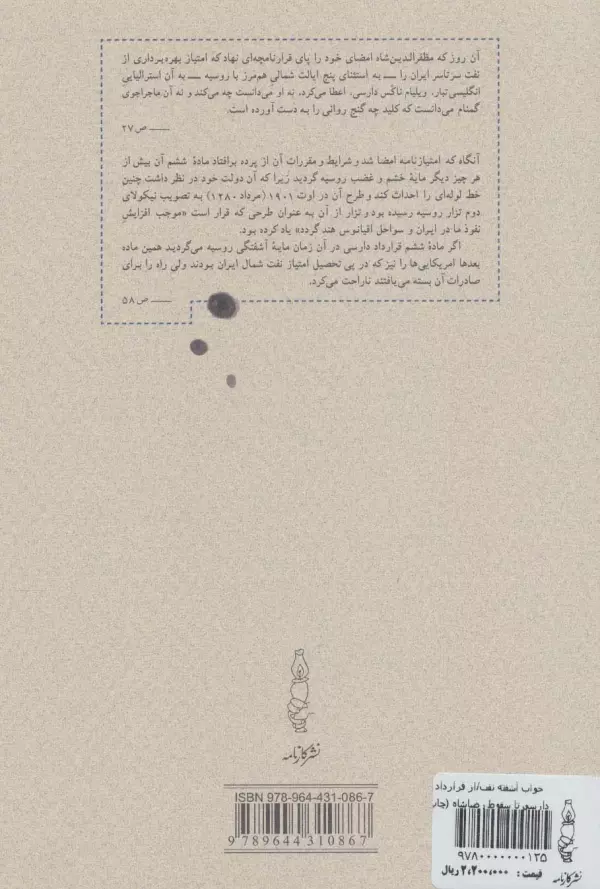 آن روز که مظفرالدین‌شاه امضای خود را پای قرارنامچه‌ای نهاد که امتیاز بهره‌برداری از
نفت سرتاسر ایران را — به استثنای پنج ایالت شمالیِ هم‌مرز با روسیه — به آن استرالیاییِ
انگلیسی‌تبار، ویلیام ناکْس دارسی، اعطا می‌کرد، نه او می‌دانست چه می‌کند و نه آن ماجراجوی
گمنام می‌دانست که کلید چه گنج روانی را به دست آورده است.
— ص ۲۷
آنگاه که امتیازنامه امضا شد و شرایط و مقررات آن از پرده برافتاد مادهٔ ششم آن بیش از
هر چیز دیگر مایهٔ خشم و غضب روسیه گردید زیرا که آن دولت خود در نظر داشت چنین
خط لوله‌ای را احداث کند و طرح آن در اوت ۱۹۰۱ (مرداد ۱۲۸۰) به تصویب نیکولای
دوم تزار روسیه رسیده بود و تزار از آن به عنوان طرحی که قرار است «موجب افزایش
نفوذ ما در ایران و سواحل اقیانوس هند گردد» یاد کرده بود.
اگر مادهٔ ششم قرارداد دارسی در آن زمان مایهٔ آشفتگی روسیه می‌گردید همین ماده
بعدها امریکایی‌ها را نیز که در پی تحصیل امتیاز نفت شمال ایران بودند ولی راه را برای
صادرات آن بسته می‌یافتند ناراحت می‌کرد.
— ص ۵۸
نشر کارنامه
ISBN 978-964-431-086-7
9 789644 310867
خواب آشفته نفت/از قرارداد
دارسی تا سقوط رضاشاه (چاپ
۹۷۸۰۰۰۰۰۰۰۱۲۵
قیمت : ۲,۲۰۰,۰۰۰ ریال
نشر کارنامه